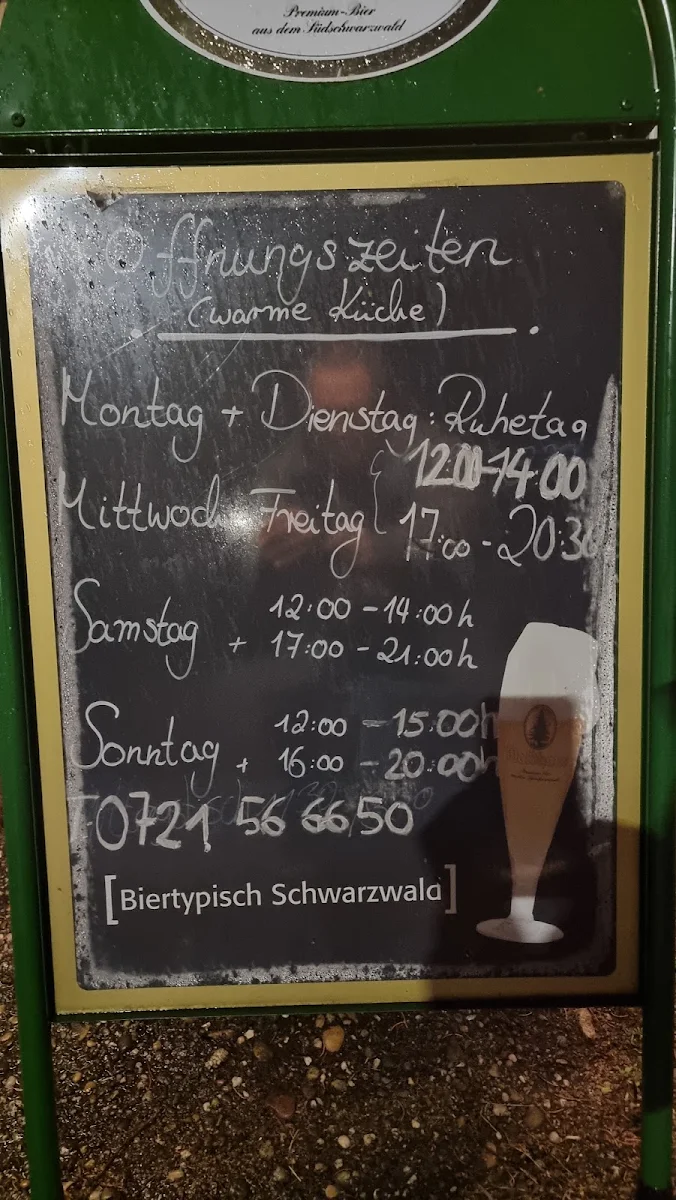 Premium-Bier
aus dem Südschwarzwald
Öffnungszeiten
(warme Küche)
Montag + Dienstag: Ruhetag
12:00-14:00
Mittwoch - Freitag { 17:00 - 20:30
Samstag 12:00 - 14:00 h
+ 17:00 - 21:00 h
Sonntag 12:00 - 15:00 h
+ 16:00 - 20:00 h
T 0721 56 66 50
[Biertypisch Schwarzwald]